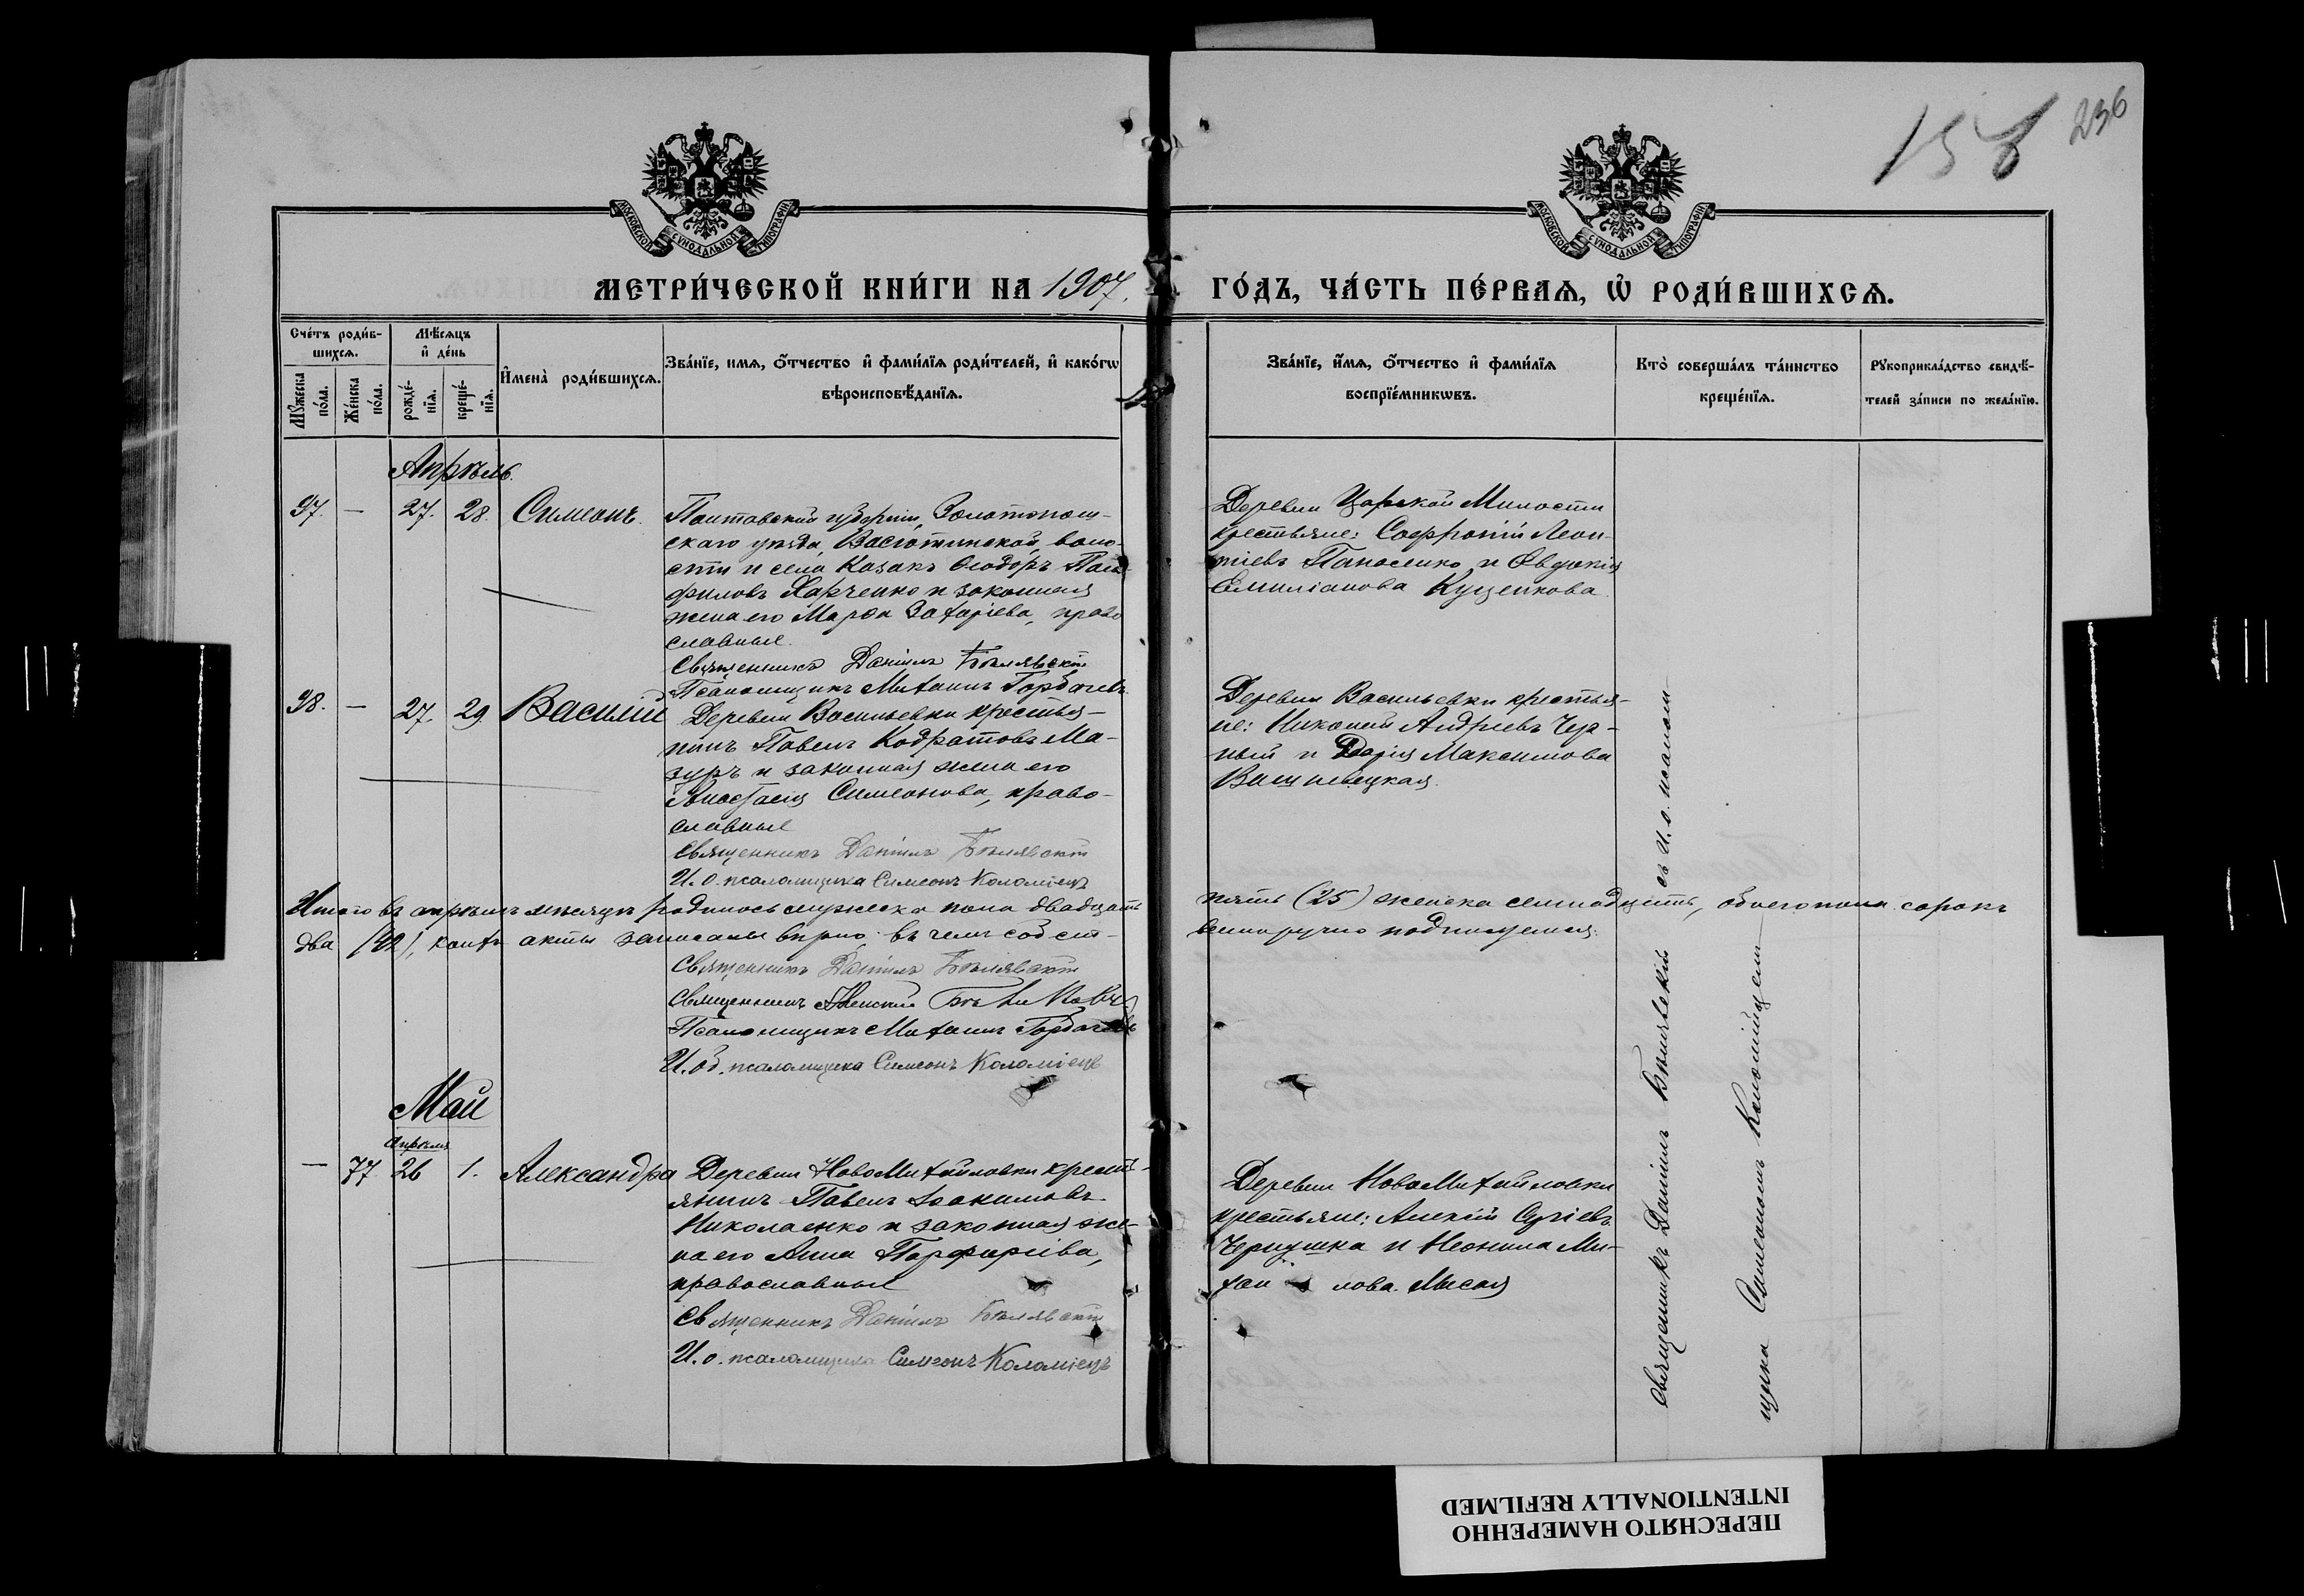 158
236
МОСКОВСКОЙ СѴНОДАЛЬНОЙ ТИПОГРАФІИ
МОСКОВСКОЙ СѴНОДАЛЬНОЙ ТИПОГРАФІИ
МЕТРИ́ЧЕСКОЙ КНИ́ГИ НА 1907.
ГО́ДЪ, ЧА́СТЬ ПЕ́РВАѦ, Ѡ҆ РОДИ́ВШИХСѦ.
Сче́тъ роди́в-
шихсѧ.
Мꙋ́жеска по́ла.
Же́нска по́ла.
Мѣ́сѧцъ
и҆ де́нь
рожде́-
нїѧ.
креще́-
нїѧ.
И҆мена̀ роди́вшихсѧ.
Зва́нїе, имѧ, ѻ҆́тчество и҆ фами́лїѧ роди́телей, и҆ како́гѡ
вѣроисповѣ́данїѧ.
Зва́нїе, и҆́мѧ, ѻ҆́тчество и҆ фами́лїѧ
воспрїе́мникѡвъ.
Кто̀ соверша́лъ та́инство
креще́нїѧ.
Рꙋкоприкла́дство свидѣ́-
телей за́писи по жела́нїю.
Апрѣль.
97. — 27. 28. Симеонъ.
Полтавской губерніи, Золотонош-
скаго уѣзда, Васютинской воло-
сти и села казакъ Ѳеодоръ Пан-
филовъ Харченко и законная
жена его Марѳа Захаріева, право
славные.
Священникъ Даніилъ Бѣлявскій
Псаломщикъ Михаилъ Горбачевъ
Деревни Царской Милости
крестьяне: Софроній Леон-
тіевъ Панасенко и Евдокія
Емиліанова Куценкова.
98. — 27. 29. Василій
Деревни Васильевки крестья-
нинъ Павелъ Кодратовъ Ма-
зуръ и законная жена его
Анастасія Симеонова, право-
славные
Священникъ Даніилъ Бѣлявскій
И. о. псаломщика Симеонъ Коломіецъ
Деревни Васильевки крестья-
не: Николай Андреевъ Чер-
ный и Дарія Максимова
Вашилевецкая.
Итого въ апрѣлѣ мѣсяцѣ родилось мужеска пола двадцать
пять (25) женска семнадцать, обоего пола сорокъ
два (42), коихъ акты записаны вѣрно въ чемъ собст-
венноручно подписуемся:
Священникъ Даніилъ Бѣлявскій
Священникъ
Псаломщикъ Михаилъ Горбачевъ
И. об. псаломщика Симеонъ Коломіецъ
Май
апрѣля
— 77 26 1. Александра
Деревни НовоМихайловки кресть-
янинъ Павелъ Іоакимовъ
Николаенко и законная же-
на его Анна Порфиріева,
православные
Священникъ Даніилъ Бѣлявскій
И. о. псаломщика Симеонъ Коломіецъ
Деревни НовоМихайловки
крестьяне: Алексій Сергіевъ
Чернушка и Неонила Ми-
хаи лова Лысая
Священникъ Даніилъ Бѣлявскій съ И. о. псалом-
щика Симеономъ Коломійцемъ
ПЕРЕСНЯТО НАМЕРЕННО
INTENTIONALLY REFILMED